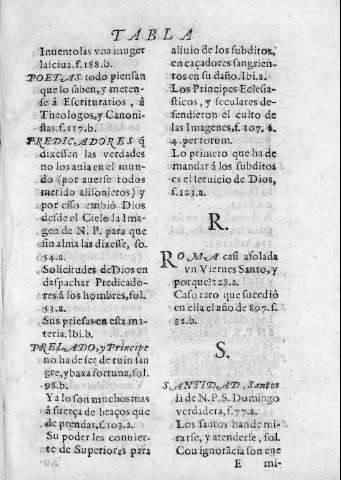 TABLA
Inuentolas vna muger
lasciua, f. 188. b.
POETAS todo piensan
que lo saben, y meten-
se á Escriturarios, á
Theologos, y Canoni-
stas. f. 117. b.
PREDICADORES q̃
dixessen las verdades
no los auia en el mun-
do (por auerse todos
metido a lisonjeros) y
por esso embió Dios
desde el Cielo la Ima-
gen de N. P. para que
sin alma las dixesse, fo.
54. a.
Solicitudes de Dios en
despachar Predicado-
res á los hombres, fol.
53. a.
Sus priesas en esta ma-
teria. Ibi. b.
PRELADO, y Principe
no ha de ser de ruin san
gre, y baxa fortuna, fol.
98. b.
Ya lo son muchos mas
á fuerça de braços que
de prendas, f. 103. a.
Su poder les conuier-
te de Superiores para
aliuio de los subditos,
en caçadores sangrien-
tos en su daño. Ibi. a.
Los Principes Eclesia-
sticos, y seculares de-
fendieron el culto de
las Imagenes, f. 107. &
4. per totum.
Lo primero que ha de
mandar á los subditos
es el seruicio de Dios,
f. 123. a.
R.
ROMA casi asolada
vn Viernes Santo, y
porque? 128. a.
Caso raro que sucedió
en ella el año de 897. f.
31. b.
S.
SANTIDAD Santos
la de N. P. S. Domingo
verdadera, f. 77. a.
Los santos han de mi-
rarse, y atenderse, fol.
Cou ignorãcia son ene
E mi-